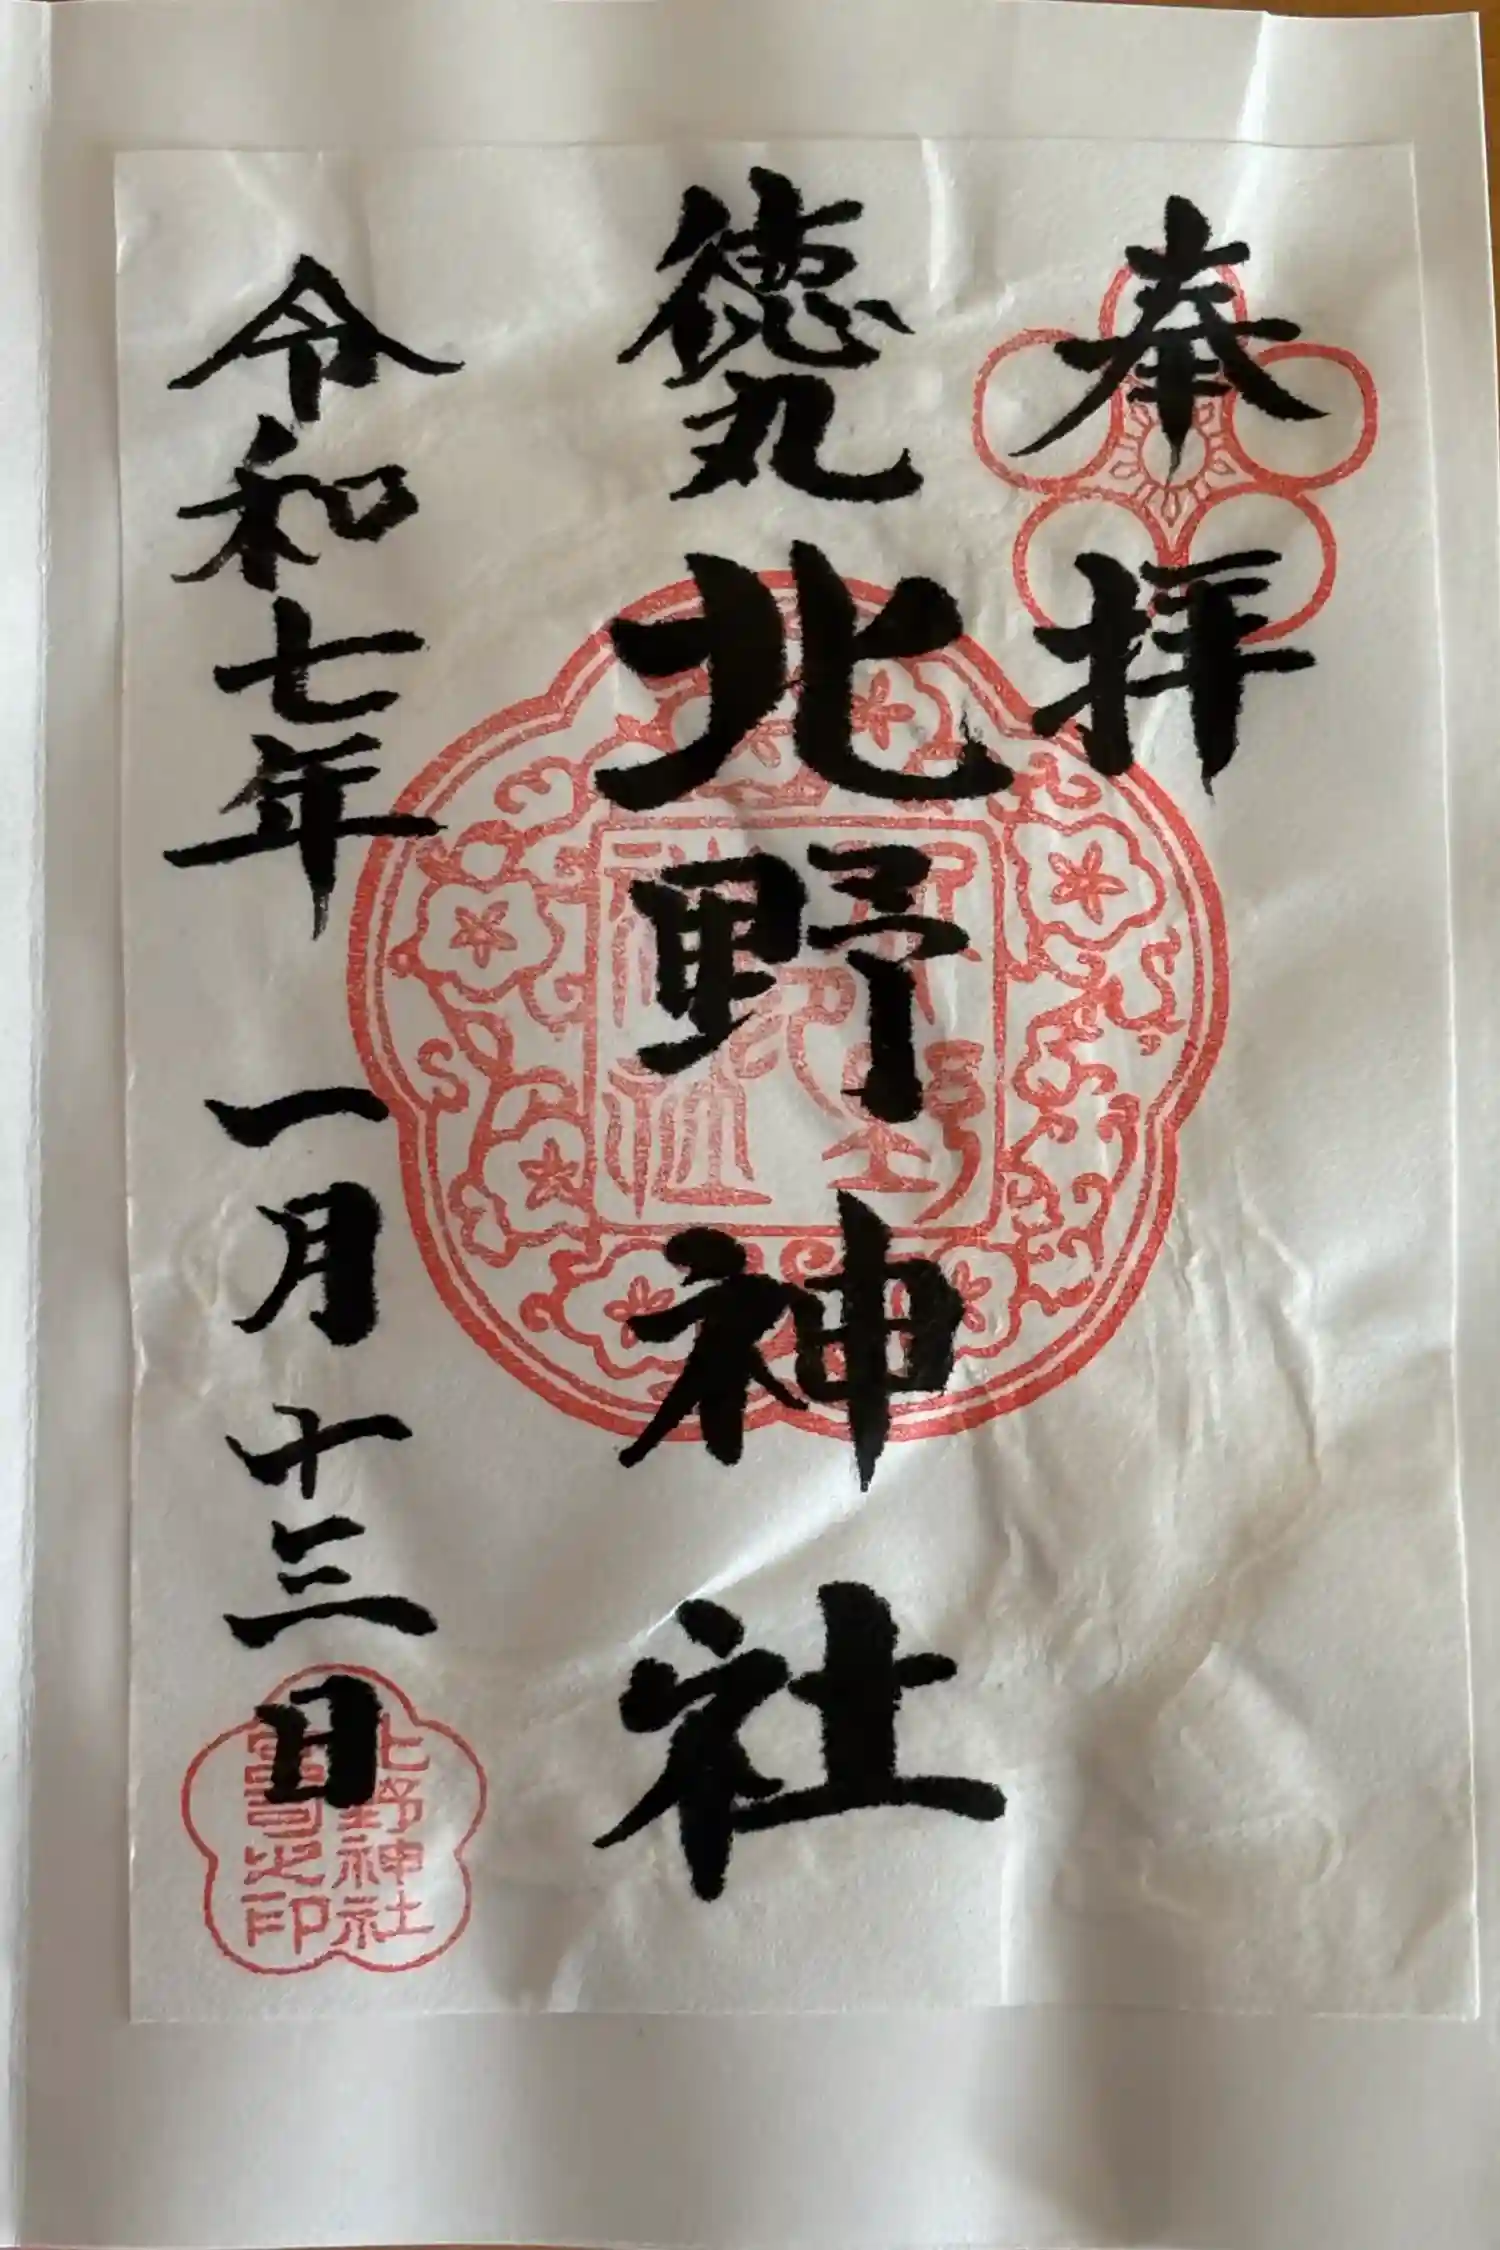 奉拝
徳丸北野神社
令和七年一月十三日
北野神社
之印